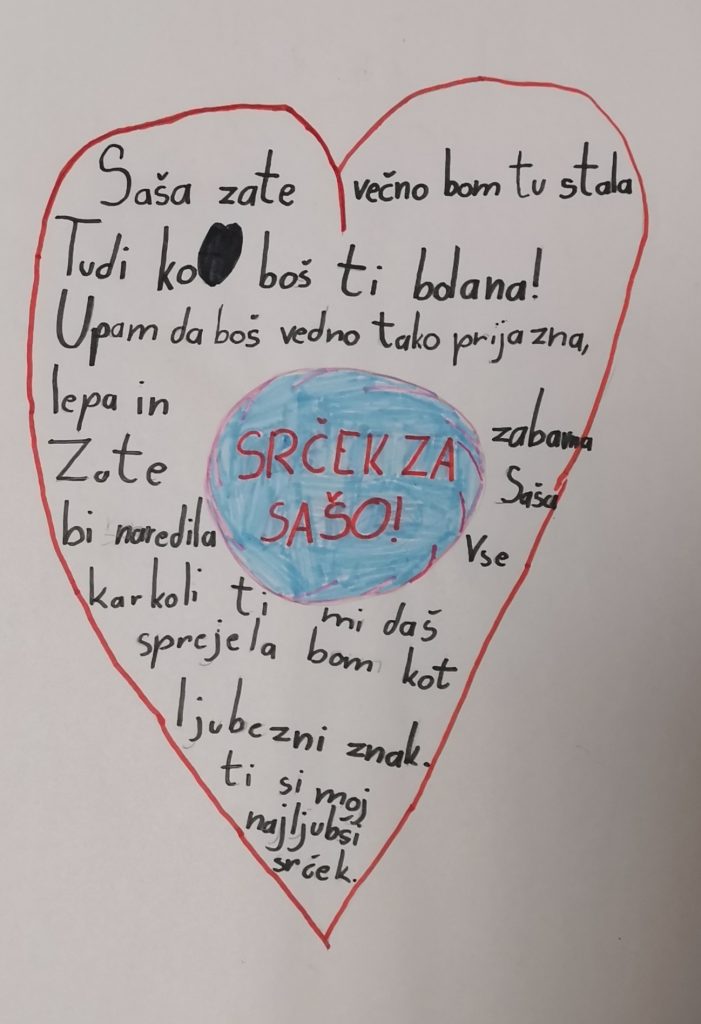 Saša zate večno bom tu stala
Tudi ko boš ti bolana!
Upam da boš vedno tako prijazna,
lepa in zabavna
Zate Saša
bi naredila Vse
karkoli ti mi daš
sprejela bom kot
ljubezni znak.
ti si moj
najljubši
srček.
SRČEK ZA
SAŠO!